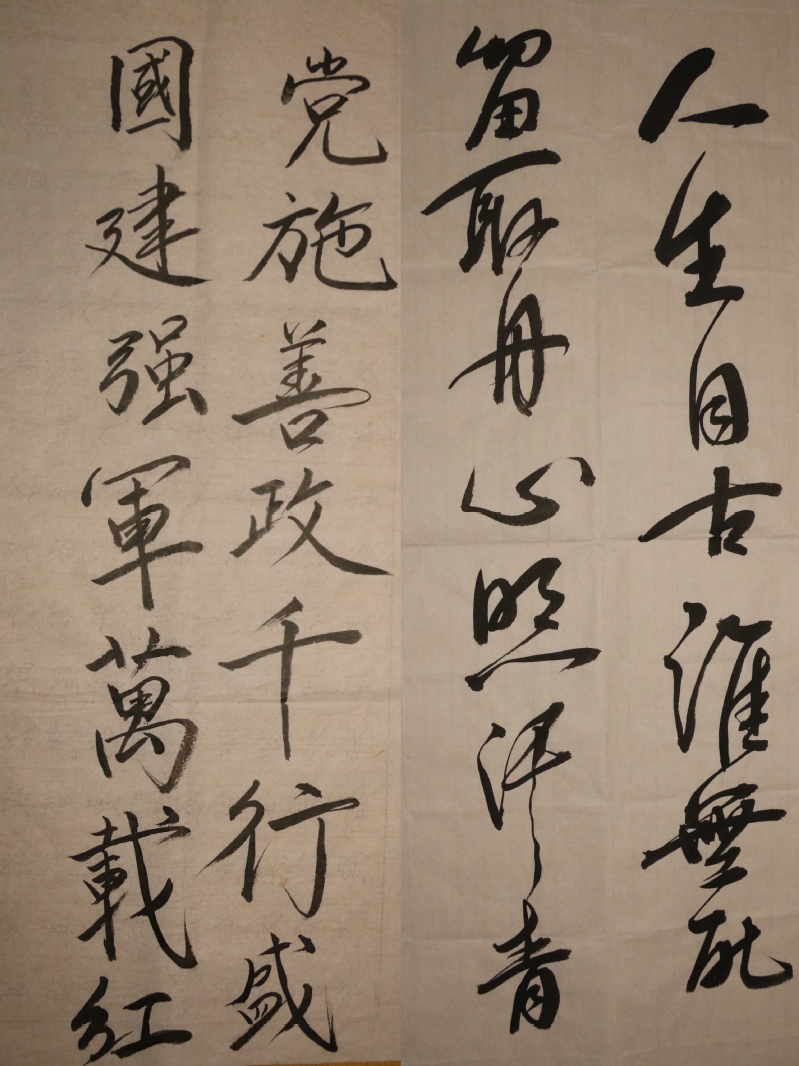 人生自古誰無死
留取丹心照汗青
党施善政千行盛
國建强軍萬載紅